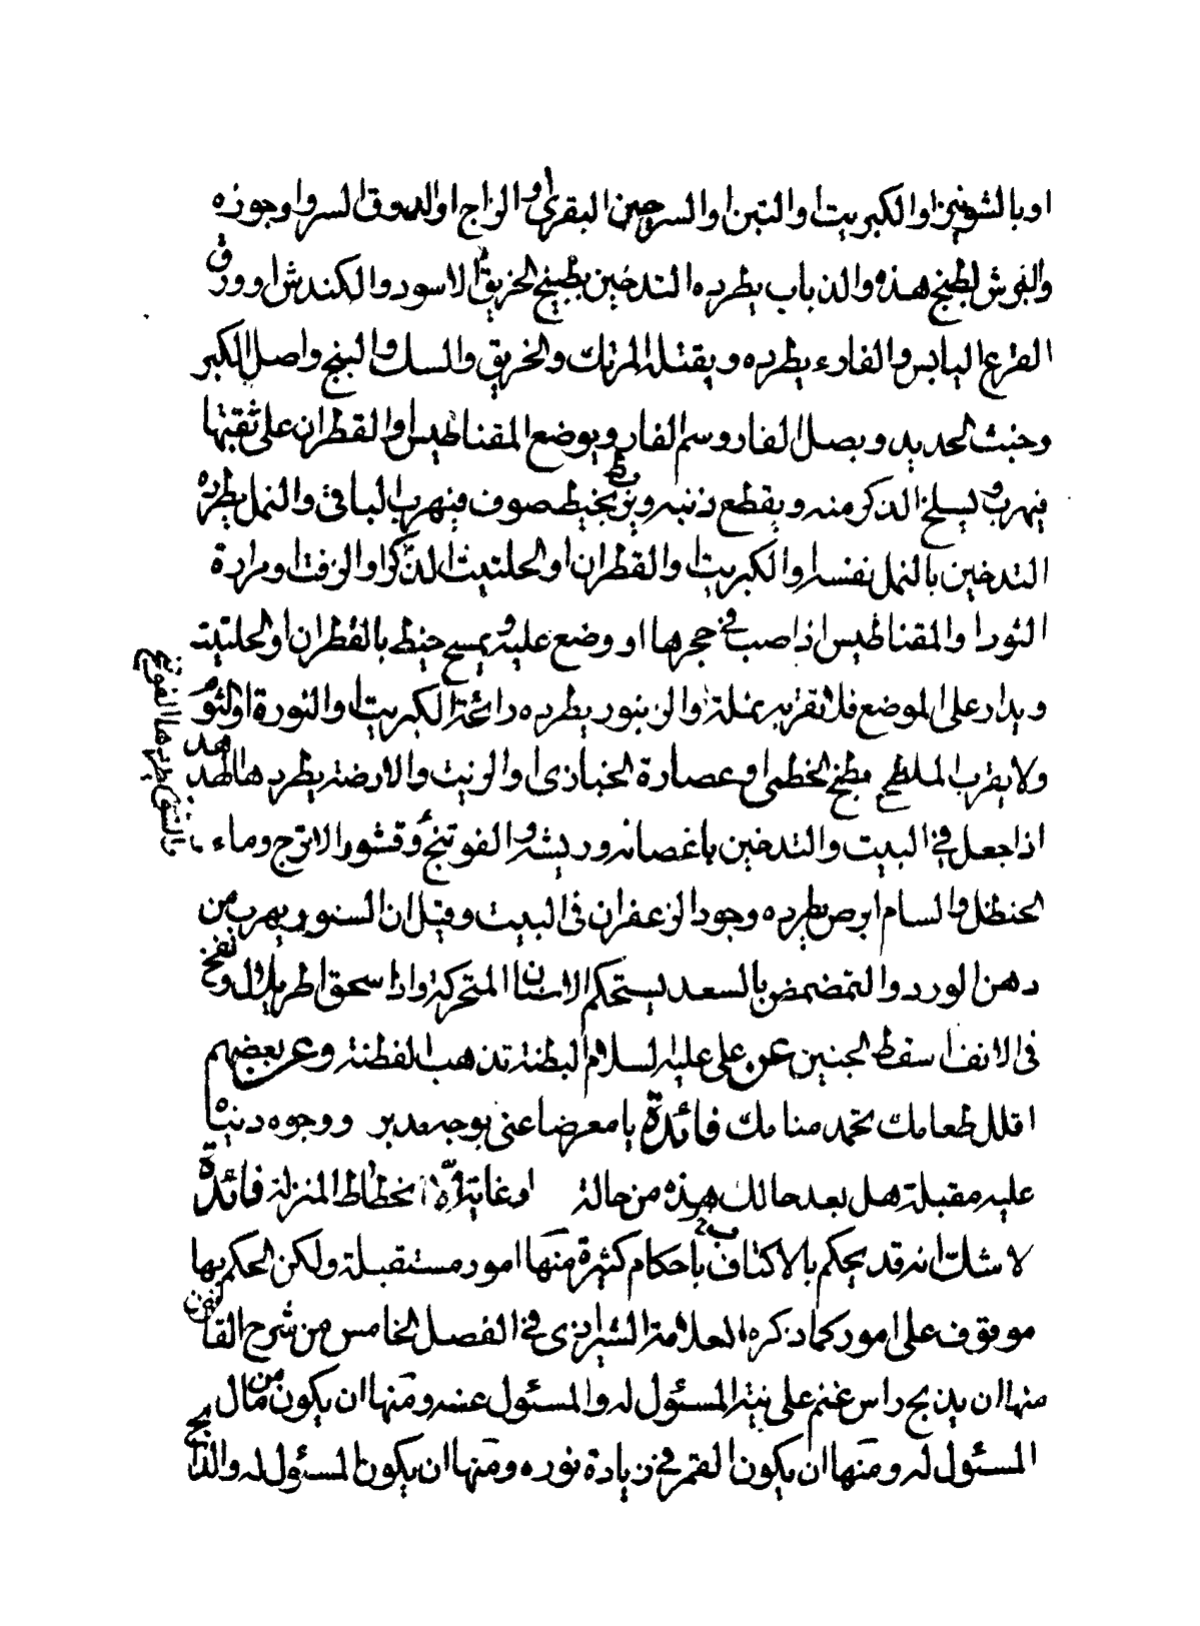 او بالشونيز او الكبريت او التبن او السرجين البقرى او الزاج او ورق السرو او جوزه
والفرش بطبيخ هذه والذباب يطرده التدخين بطبيخ الخربق الاسود والكندش او ورق
القرع اليابس والفارء يطرده ويقتله المرتك والخربق والسك والبنج واصل الكبر
وخبث الحديد وبصل الفار وسم الفار ويوضع المقناطيس والقطران على ثقبتها
فيهرب ويسلخ الذكر منه ويقطع ذنبه ويربط بخيط صوف فيهرب الباقى والنمل يطرده
التدخين بالنمل نفسه او الكبريت او القطران او الحلتيت الذكر او الزفت او مرارة
الثور او المقناطيس اذا صب فى حجرها او وضع عليه ويمسح خيط بالقطران او الحلتيت
ويدار على الموضع فلا تقربه نملة والزنبور يطرده رائحة الكبريت او النورة او الثوم
ولا يقرب الملطخ بطبخ الخطمى او عصارة الخبازى او الزيت والارضة يطردها الهدهد
اذا جعل فى البيت والتدخين باغصانه وريشه والفوتنج وقشور الاترج وماء
الحنظل والسام ابرص يطرده وجود الزعفران فى البيت وقيل ان السنور يهرب من
دهن الورد والتمضمض بالسعد يستحكم الاسنان المتحركة واذا سحق اطريلال ونفخ
فى الانف اسقط الجنين عن على عليه السلام البطنة تذهب الفطنة وعن بعضهم
اقلل طعامك تحمد منامك فائدة يا معرضا عنى بوجه مدبر ووجوه دنياه
عليه مقبلة هل بعد حالك هذه من حالة او غاية الا انحطاط المنزلة فائدة
لا شك انه قد يحكم بالاكتاف باحكام كثيرة منها امور مستقبلة ولكن الحكم بها
موقوف على امور كما ذكره العلامة الشيرازى فى الفصل الخامس من شرح القانون
منها ان يذبح راس غنم على نية المسئول له والمسئول عنه ومنها ان يكون من مال
المسئول له ومنها ان يكون القمر فى زيادة نوره ومنها ان يكون المسئول له والذابح